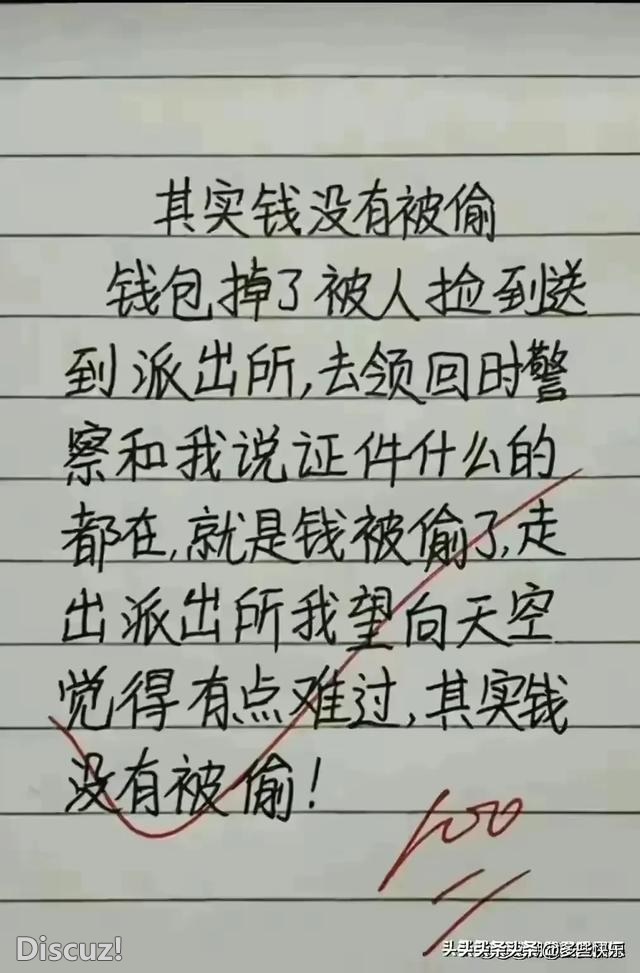 其实钱没有被偷
钱包掉了被人捡到送
到派出所,去领回时警
察和我说证件什么的
都在,就是钱被偷了,走
出派出所我望向天空
觉得有点难过,其实钱
没有被偷!
100
Discuz!